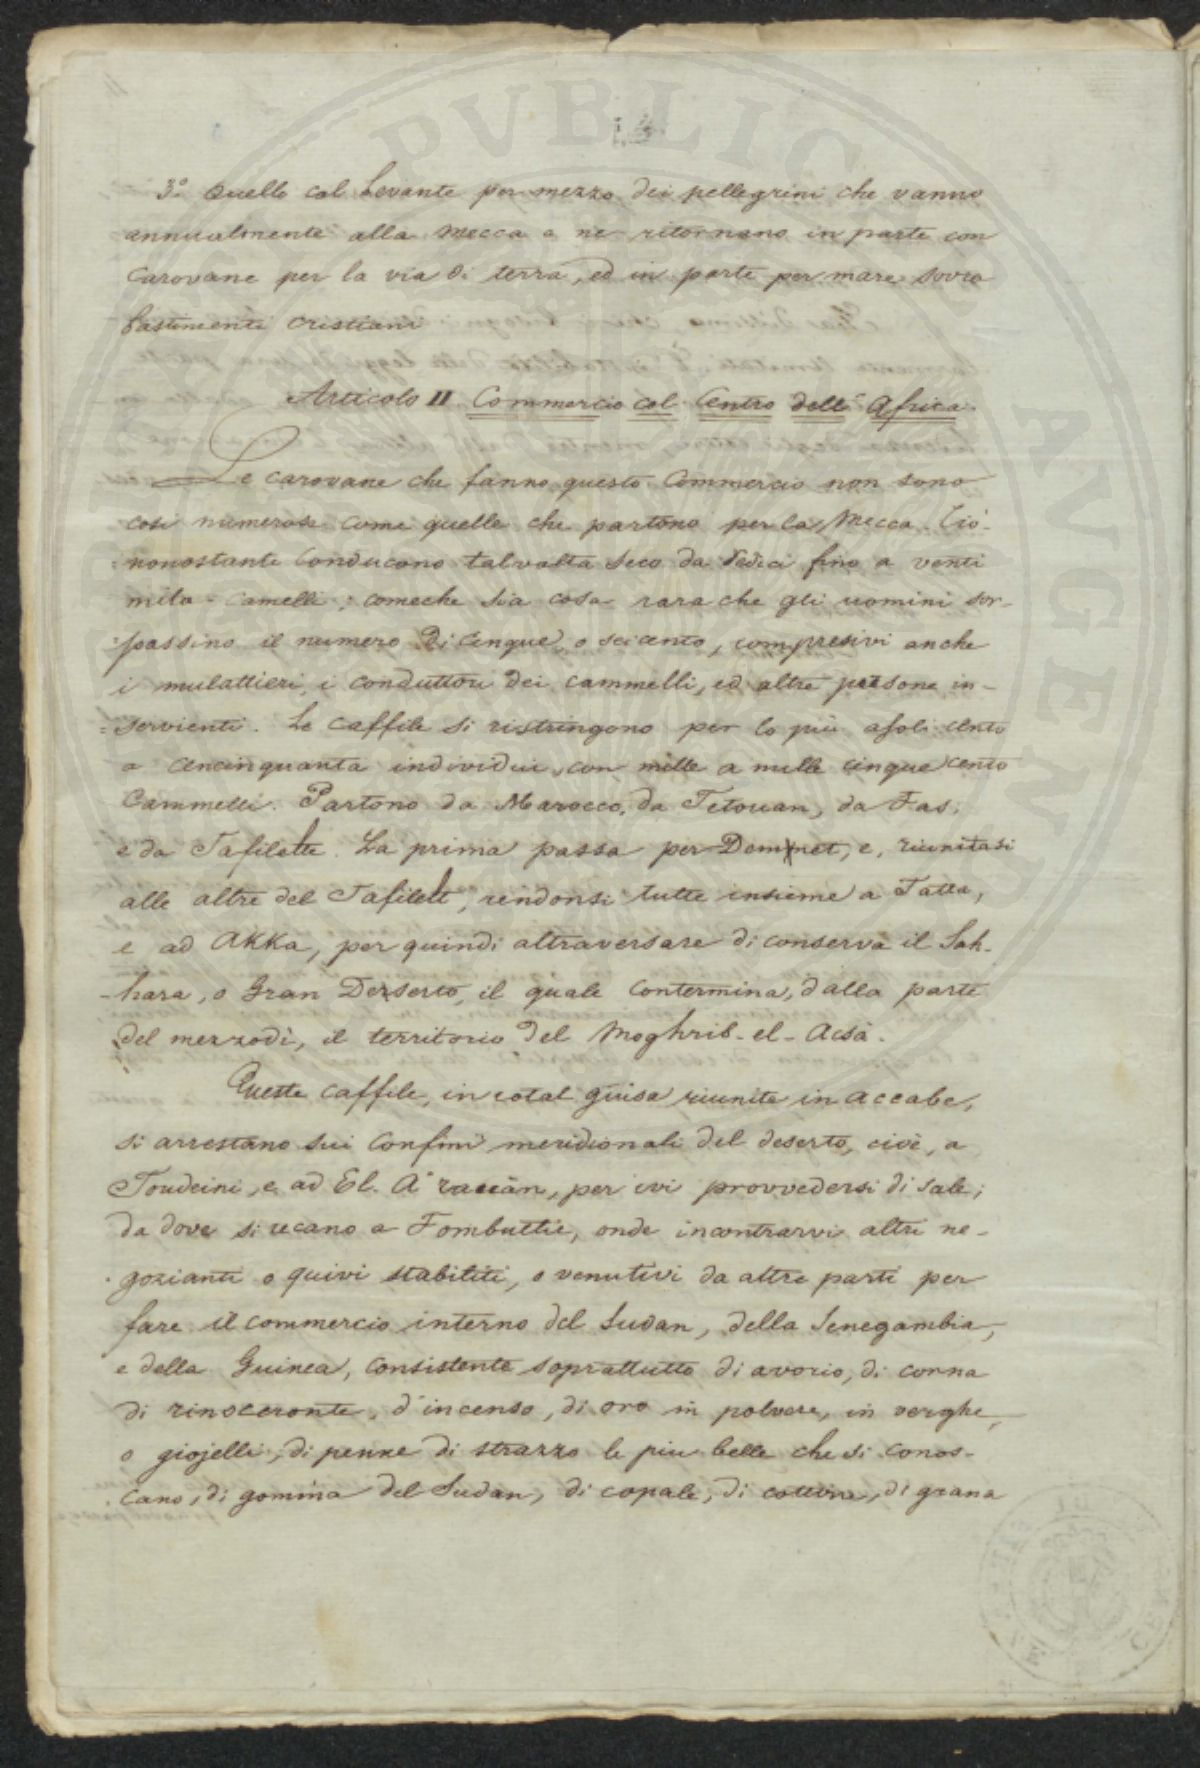 3.° Quello col Levante per mezzo dei pellegrini che vanno
annualmente alla Mecca e ne ritornano in parte con
Carovane per la via di terra, ed in parte per mare sovra
bastimenti cristiani
Articolo II Commercio col Centro dell' Africa.
Le carovane che fanno questo Commercio non sono
così numerose come quelle che partono per la Mecca. Ciò
nonostante Conducono talvolta seco da sedici fino a venti
mila Camelli; comechè sia cosa rara che gli uomini sor-
passino il numero di cinque, o seicento, compresivi anche
i mulattieri, i conduttori dei cammelli, ed altre persone in-
servienti. Le caffile si ristringono per lo più a soli cento
a cencinquanta individui, con mille a mille cinquecento
Cammelli. Partono da Marocco, da Tetouan, da Fas,
e da Tafilelt. La prima passa per Demnet, e, riunitasi
alle altre del Tafilelt, rendonsi tutte insieme a Tatta,
e ad Akka, per quindi attraversare di conserva il Sah-
-hara, o Gran Deserto, il quale contermina, dalla parte
del mezzodì, il territorio del Moghrib-el-Acsà.
Queste caffile, in cotal guisa riunite in accabe,
si arrestano sui Confini meridionali del deserto, cioè, a
Toudeini, e ad El. A'raccàn, per ivi provvedersi di sale;
da dove si recano a Tombuttù, onde incontrarvi altri ne-
gozianti o quivi stabiliti, o venutivi da altre parti per
fare il commercio interno del Sudan, della Senegambia,
e della Guinea, consistente soprattutto di avorio, di corna
di rinoceronte, d'incenso, di oro in polvere, in verghe,
o giojelli, di penne di struzzo le piu belle che si conos-
cano, di gomma del Sudan, di copale, di cottone, di grana